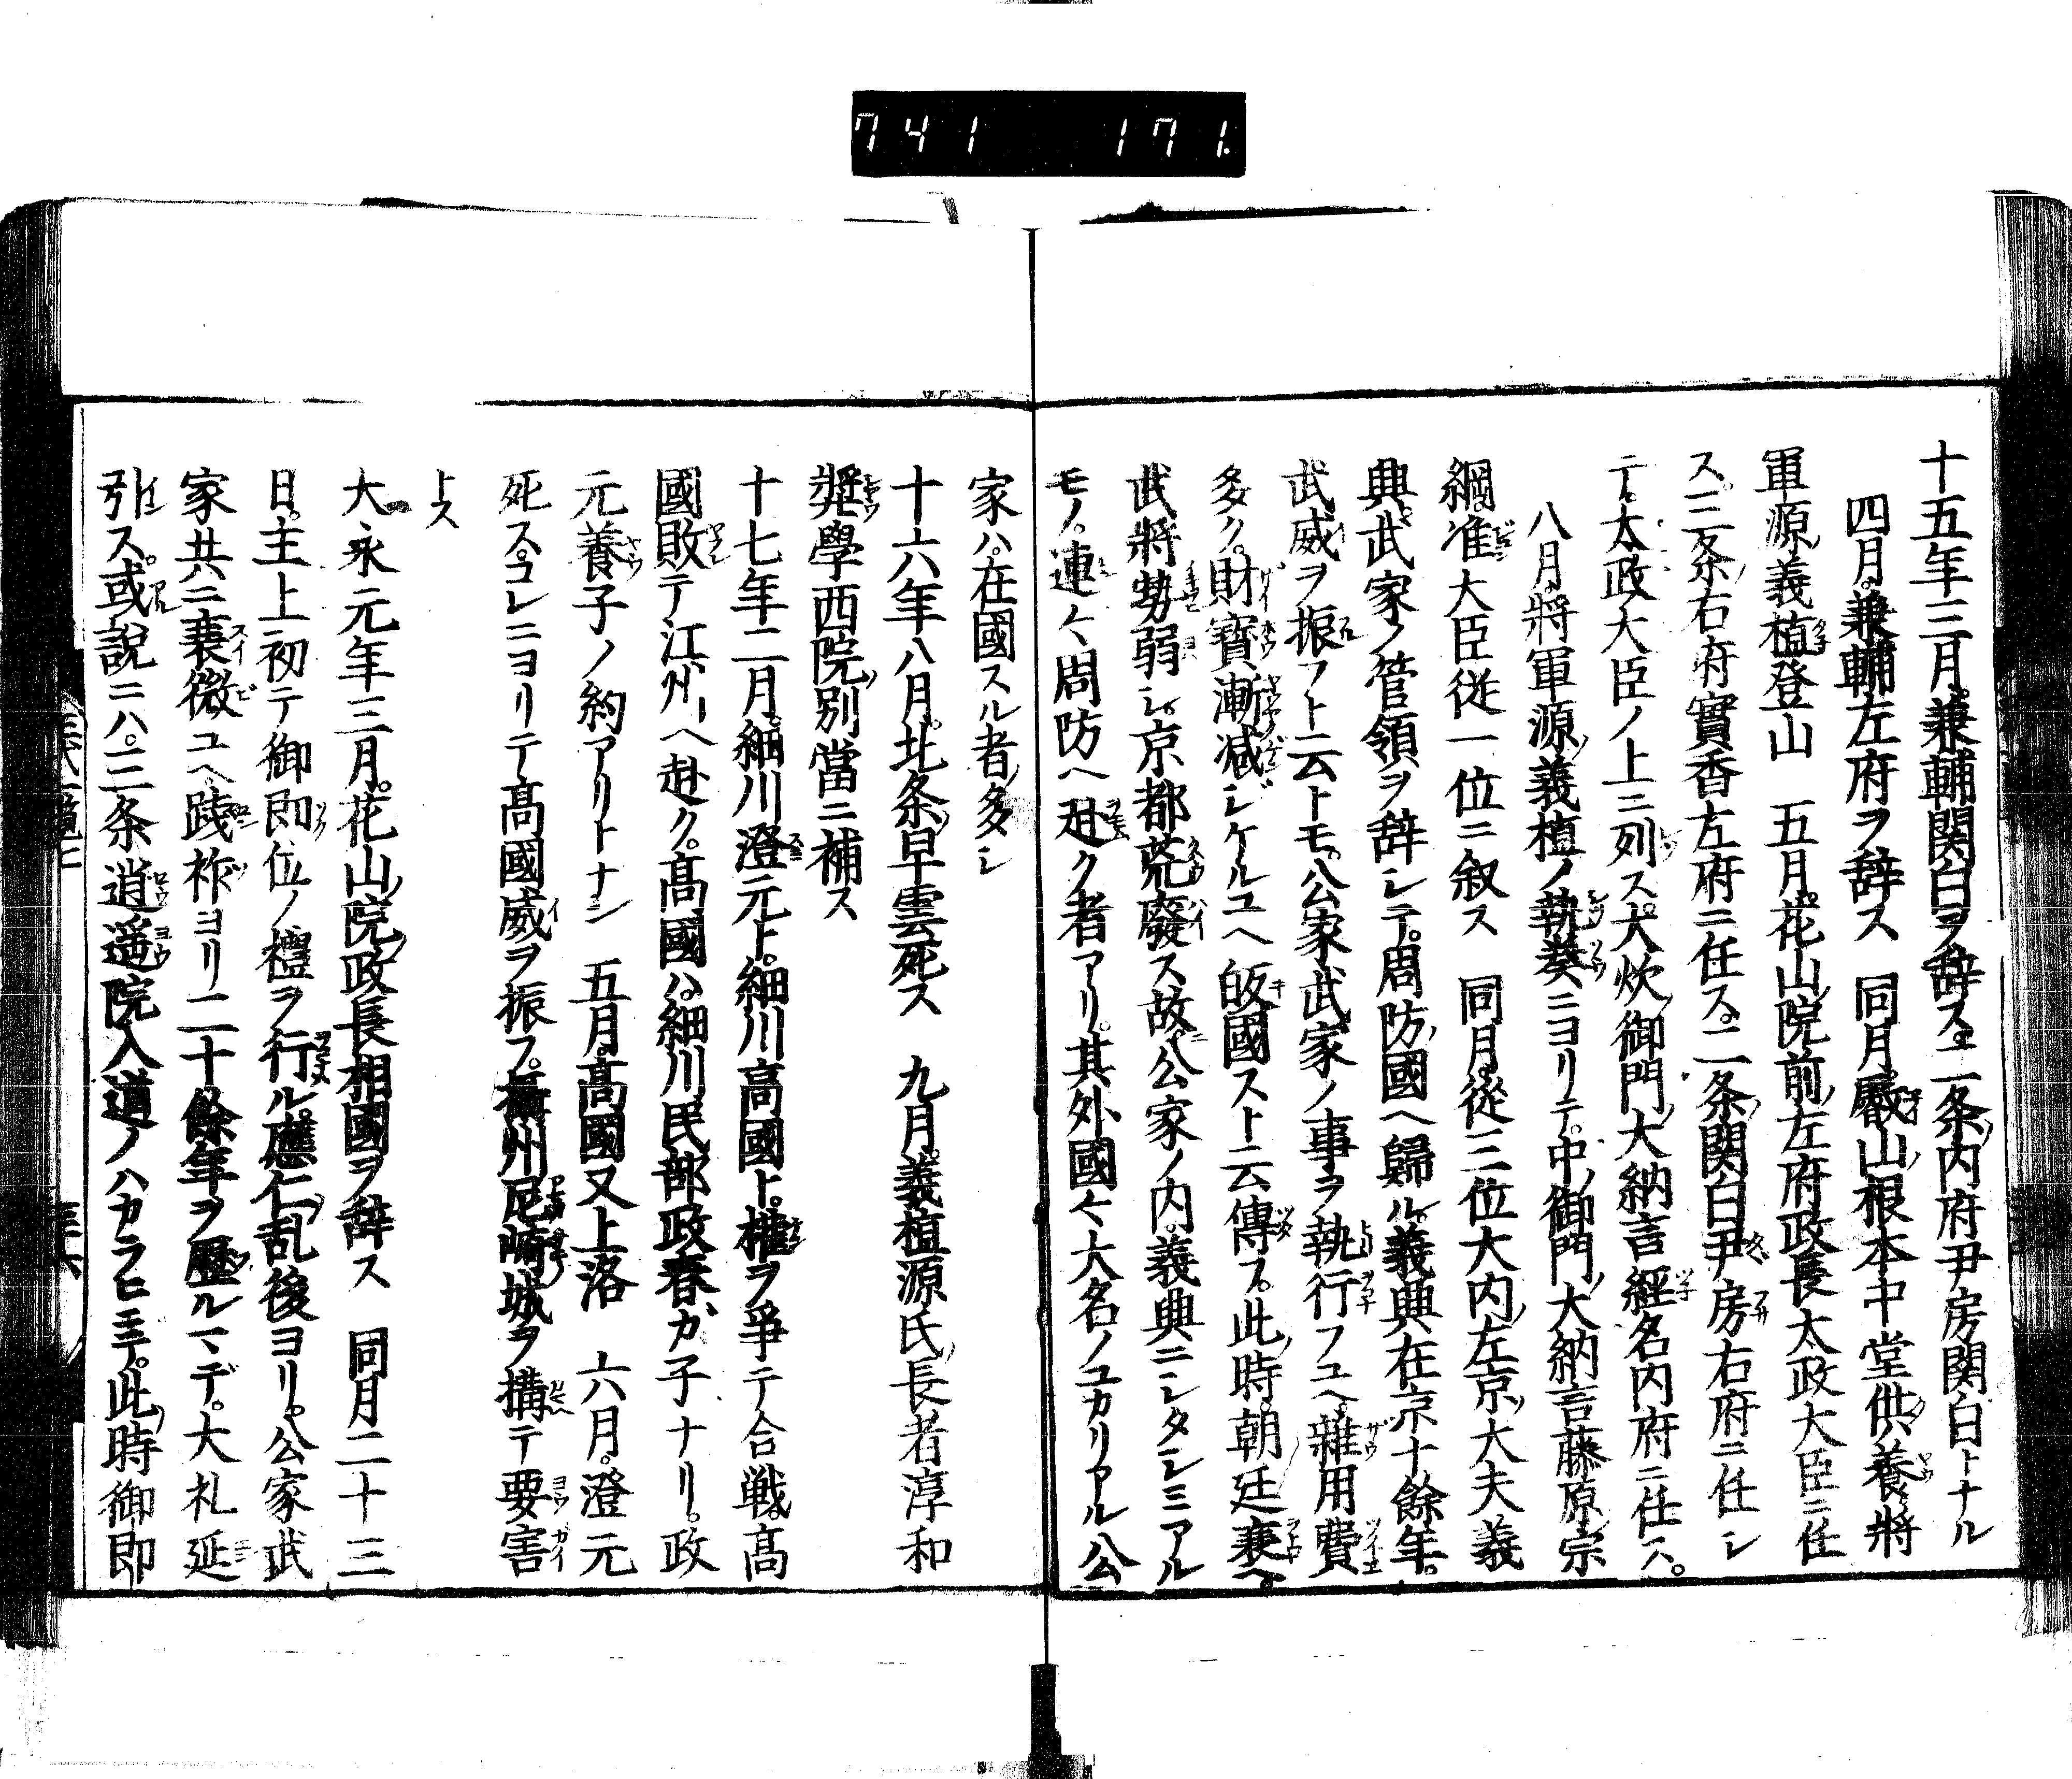 741 171.
十五年三月。兼輔関白ヲ辞ス。二条内府尹房関白トナル
四月。兼輔左府ヲ辞ス 同月。叡山根本中堂供養。將
軍源義植登山 五月。花山院前左府政長太政大臣ニ任
ス。三条右府實香左府ニ任ス。二条関白尹房右府ニ任シ
テ。太政大臣ノ上ニ列ス。大炊御門大納言經名内府ニ任ス。
八月。將軍源義植ノ執奏ニヨリテ。中御門大納言藤原宗
綱。准大臣従一位ニ叙ス 同月。従三位大内左京大夫義
興。武家ノ管領ヲ辞シテ。周防國ヘ歸ル。義興在京十餘年。
武威ヲ振フト云トモ。公家武家ノ事ヲ執行フユヘ。雜用費
多ク。財寶漸減ジケルユヘ皈國スト云傳フ。此時。朝廷衰ヘ
武將勢弱シ。京都荒廢ス故。公家ノ内。義興ニシタシミアル
モノ。連々周防ヘ赴ク者アリ。其外國々大名ノユカリアル公
家ハ。在國スル者多シ
十六年八月。北条早雲死ス 九月。義植源氏長者淳和
奬學西院別當ニ補ス
十七年二月。細川澄元ト。細川高國ト。權ヲ爭テ合戦。髙
國敗テ江州ヘ赴ク。髙國ハ。細川民部政春カ子ナリ。政
元養子ノ約アリトナン 五月。髙國又上洛 六月。澄元
死ス。コレニヨリテ髙國威ヲ振フ。攝州尼崎城ヲ搆テ要害
トス
大永元年三月。花山院政長相國ヲ辞ス 同月二十三
日。主上初テ御即位ノ禮ヲ行ル。應仁乱後ヨリ。公家武
家共ニ衰微ユヘ。踐祚ヨリ二十餘年ヲ歴ルマデ。大礼延
引ス。或說ニハ。三条逍遥院入道ノハカラヒニテ。此時御即